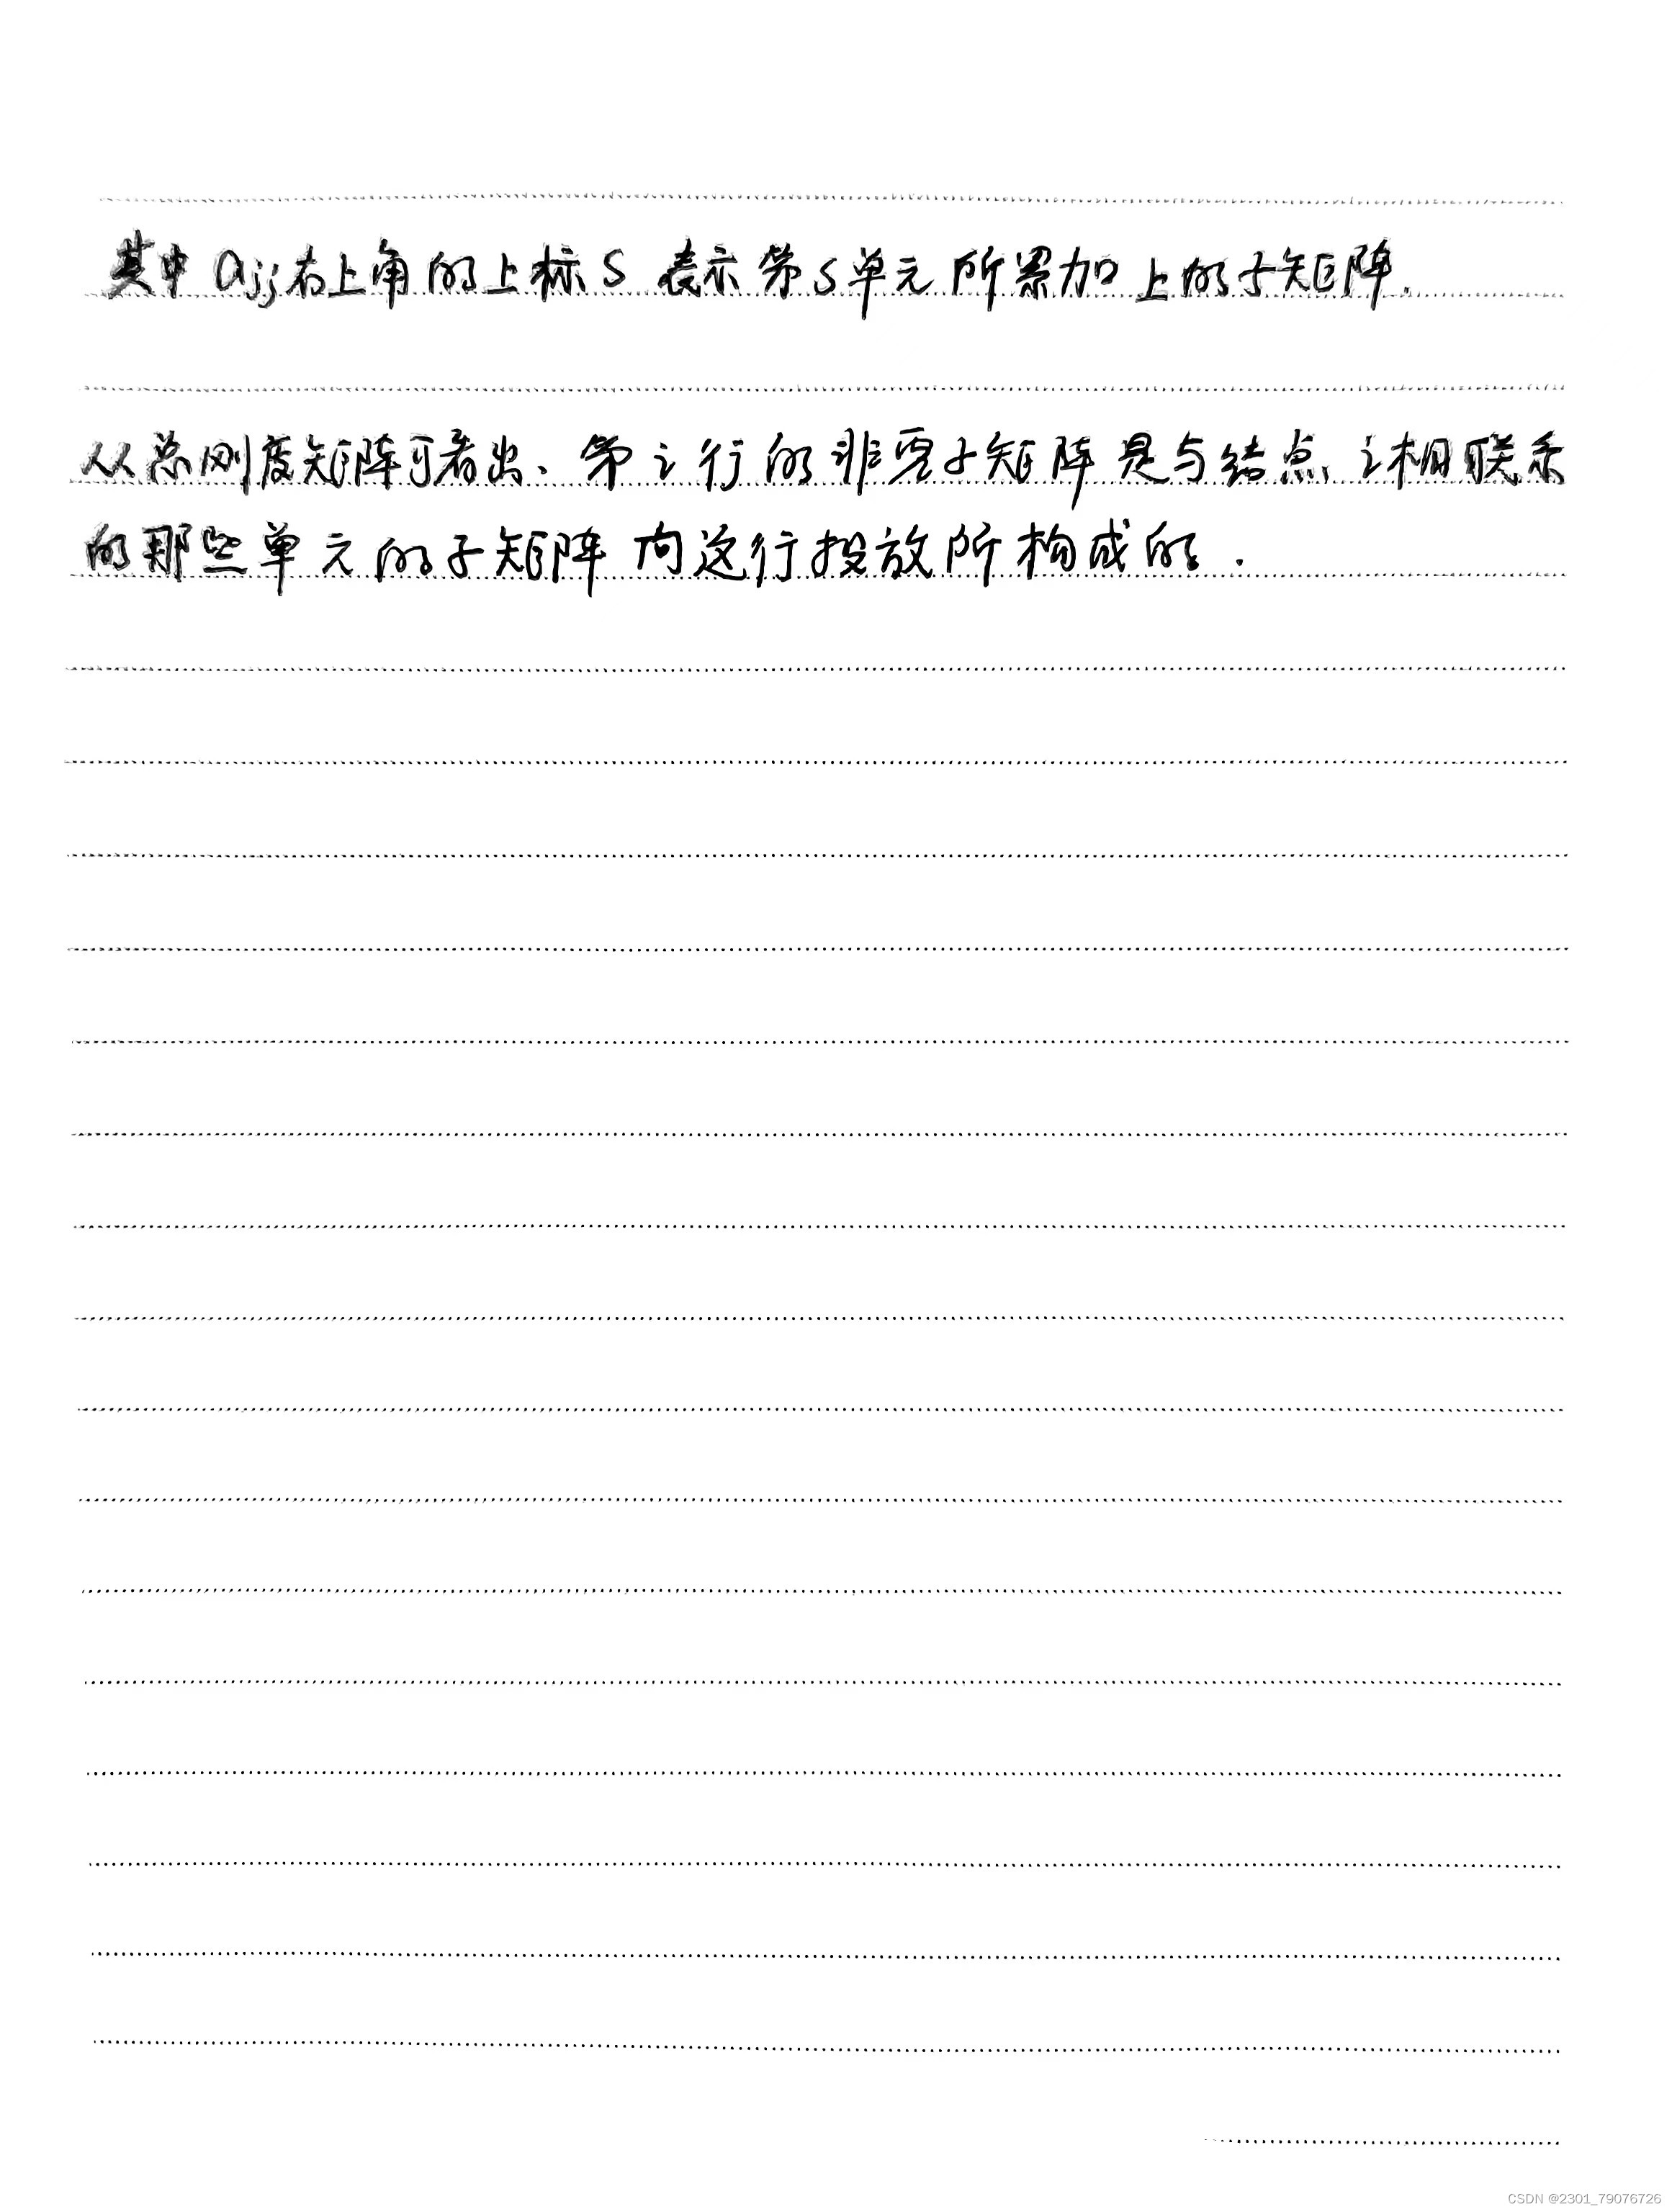 其中 aij右上角的上标S 表示第S单元所累加上的子矩阵.
从总刚度矩阵可看出、第i行的非零子矩阵是与结点i相联系
的那些单元的子矩阵向这行投放所构成的.
CSDN @2301_79076726